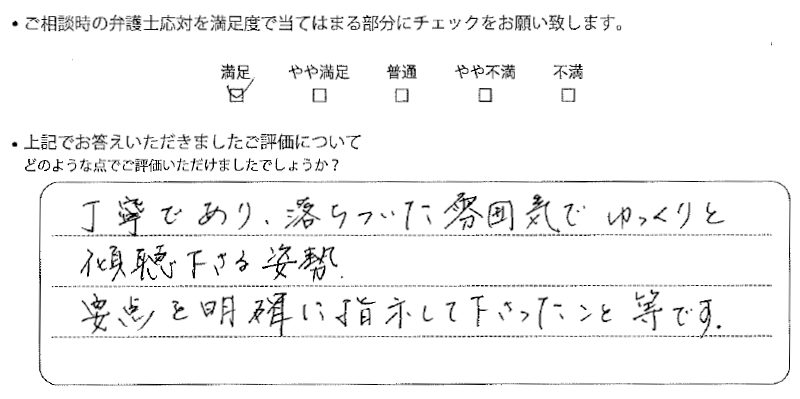 ・ご相談時の弁護士応対を満足度で当てはまる部分にチェックをお願い致します。
満足 やや満足 普通 やや不満 不満
・上記でお答えいただきましたご評価について
どのような点でご評価いただけましたでしょうか？
丁寧であり、落ちついた雰囲気でゆっくりと
傾聴下さる姿勢.
要点を明確に指示して下さったこと等です.